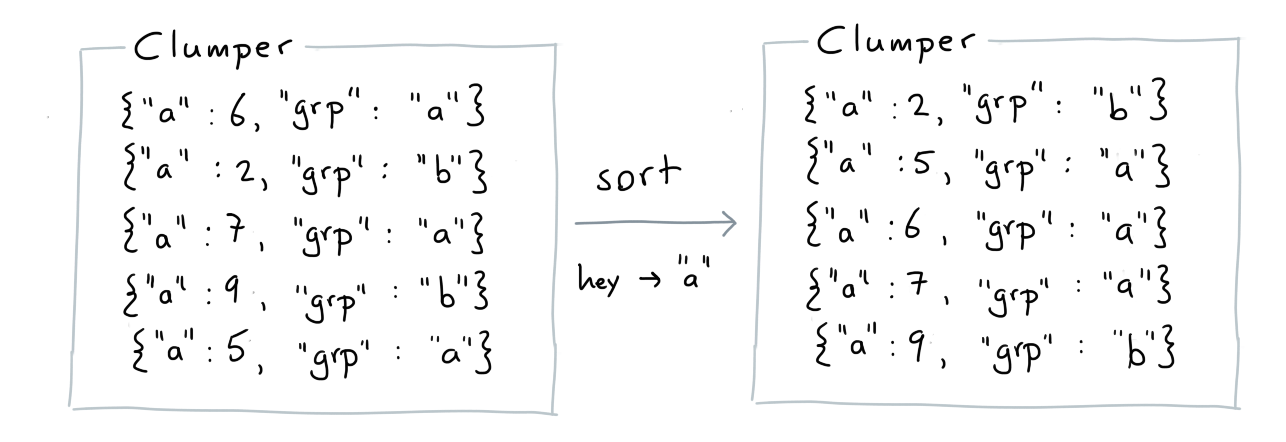 Clumper
{"a" : 6, "grp" : "a"}
{"a" : 2, "grp" : "b"}
{"a" : 7, "grp" : "a"}
{"a" : 9, "grp" : "b"}
{"a" : 5, "grp" : "a"}
sort
hey → "a"
Clumper
{"a" : 2, "grp" : "b"}
{"a" : 5, "grp" : "a"}
{"a" : 6, "grp" : "a"}
{"a" : 7, "grp" : "a"}
{"a" : 9, "grp" : "b"}